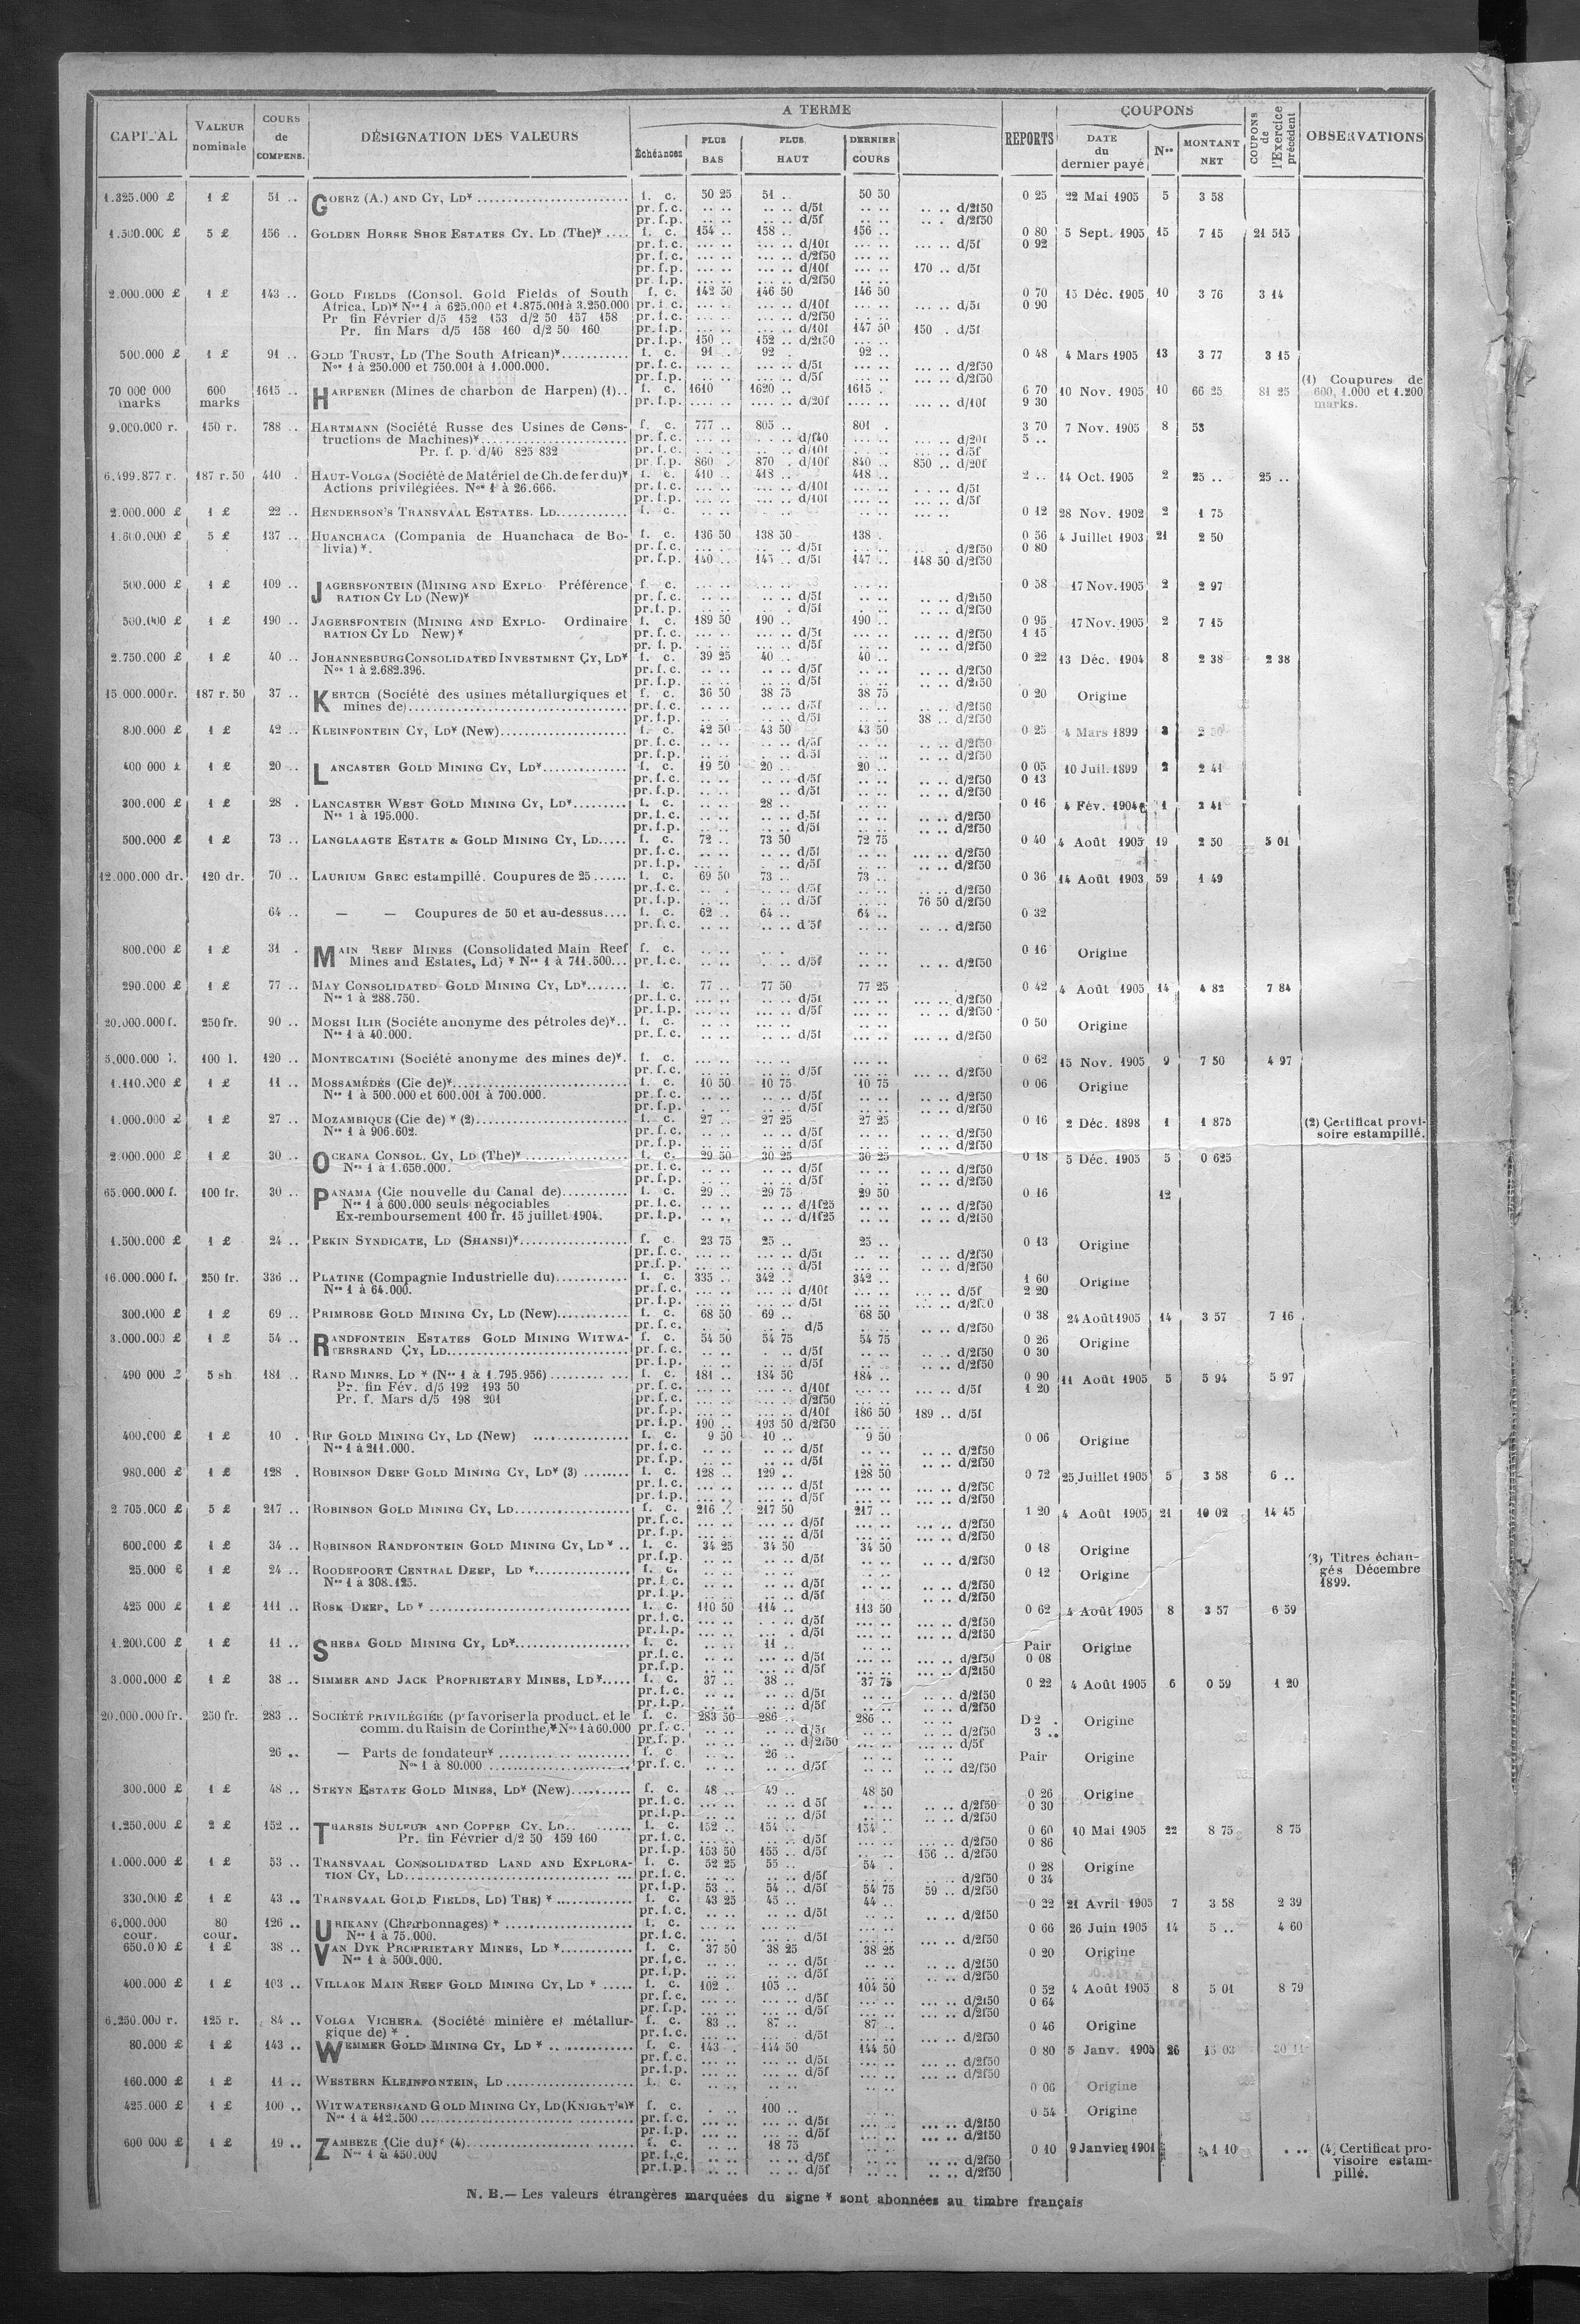 CAPITAL VALEUR nominale COURS de COMPENS. DÉSIGNATION DES VALEURS A TERME Échéances PLUS BAS PLUS HAUT DERNIER COURS REPORTS COUPONS DATE du dernier payé Nos MONTANT NET COUPONS de l'Exercice précédent OBSERVATIONS
1.325.000 £ 1 £ 51 .. GOERZ (A.) AND CY, LD* f. c. 50 25 51 .. 50 50 0 25 22 Mai 1905 5 3 58
pr. f. c. .. .. .. .. d/5f .. .. .. .. d/2f50
pr. f. p. .. .. .. .. d/5f .. .. .. . d/2f50
1.500.000 £ 5 £ 156 .. GOLDEN HORSE SHOE ESTATES CY. LD (The)* .... f. c. 154 .. 158 .. 156 .. 0 80 5 Sept. 1905 15 7 15 21 515
pr. f. c. ... .. ... .. d/10f ... .. ... .. d/5f 0 92
pr. f. c. ... .. ... .. d/2f50 ... ..
pr. f. p. ... .. ... .. d/10f ... .. 170 .. d/5f
pr. f. p. ... .. ... .. d/2f50 ... ..
2.000.000 £ 1 £ 143 .. GOLD FIELDS (Consol. Gold Fields of South f. c. 142 50 146 50 146 50 0 70 15 Déc. 1905 10 3 76 3 14
Africa, LD)* Nos 1 à 625.000 et 1.875.001 à 3.250.000 pr. f. c. ... .. ... .. d/10f ... .. ... .. d/5f 0 90
Pr fin Février d/5 152 153 d/2 50 157 158 pr. f. c. ... .. ... .. d/2f50
Pr. fin Mars d/5 158 160 d/2 50 160 pr. f. p. ... .. ... .. d/10f 147 50 150 . d/5f
pr. f. p. 150 .. 152 .. d/2f50 ... ..
500.000 £ 1 £ 91 .. GOLD TRUST, LD (The South African)* f. c. 91 .. 92 . 92 .. 0 48 4 Mars 1905 13 3 77 3 15
Nos 1 à 250.000 et 750.001 à 1.000.000. pr. f. c. .. .. .. .. d/5f .. .. .. .. d/2f50
pr. f. p. .. .. .. .. d/5f .. .. .. .. d/2f50
70 000 000 marks 600 marks 1615 .. HARPENER (Mines de charbon de Harpen) (1).. f. c. 1610 1620 .. 1615 . 6 70 10 Nov. 1905 10 66 25 81 25 (1) Coupures de 600, 1.000 et 1.200 marks.
pr. f. p. .... .. .... .. d/20f .... .. ... .. d/10f 9 30
9.000.000 r. 150 r. 788 .. HARTMANN (Société Russe des Usines de Cons- f. c. 777 .. 805 .. 801 . 3 70 7 Nov. 1905 8 53
tructions de Machines)* pr. f. c. ... .. d/f40 ... .. d/20f 5 ..
Pr. f. p. d/40 825 832 pr. f. c. ... .. d/10f ... .. d/5f
pr. f. p. 860 .. 870 . d/10f 840 .. 850 .. d/20f
6.499.877 r. 187 r. 50 410 . HAUT-VOLGA (Société de Matériel de Ch. de fer du)* f. c. 410 .. 418 .. 418 .. 2 .. 14 Oct. 1905 2 25 .. 25 ..
Actions privilégiées. Nos 1 à 26.666. pr. f. c. ... .. ... .. d/10f ... .. ... .. d/5f
pr. f. p. ... .. ... .. d/10f ... .. ... .. d/5f
2.000.000 £ 1 £ 22 .. HENDERSON'S TRANSVAAL ESTATES. LD. f. c. .. .. .. .. .. .. 0 12 28 Nov. 1902 2 1 75
1.600.000 £ 5 £ 137 .. HUANCHACA (Compania de Huanchaca de Bo- f. c. 136 50 138 50 138 . 0 56 4 Juillet 1903 21 2 50
livia)*. pr. f. c. ... .. ... .. d/5f ... .. . d/2f50 0 80
pr. f. p. 140 .. 145 .. d/5f 147 .. 148 50 d/2f50
500.000 £ 1 £ 109 .. JAGERSFONTEIN (MINING AND EXPLO- Préférence f. c. ... .. ... .. ... .. 0 58 17 Nov. 1905 2 2 97
RATION CY LD (New)* pr. f. c. ... .. ... .. d/5f ... .. .. .. d/2f50
pr. f. p. .. .. .. . d/5f . .. .. .. d/2f50
500.000 £ 1 £ 190 .. JAGERSFONTEIN (MINING AND EXPLO- Ordinaire f. c. 189 50 190 .. 190 .. 0 95 17 Nov. 1905 2 7 15
RATION CY LD New)* pr. f. c. ... .. ... .. d/5f ... .. ... .. d/2f50 1 15
pr. f. p. .. .. .. .. d/5f .. .. ... .. d/2f50
2.750.000 £ 1 £ 40 .. JOHANNESBURG CONSOLIDATED INVESTMENT CY, LD* f. c. 39 25 40 .. 40 .. 0 22 13 Déc. 1904 8 2 38 2 38
Nos 1 à 2.682.396. pr. f. c. .. .. .. .. d/5f .. .. .. .. d/2f50
pr. f. p. .. .. .. .. d/5f .. .. .. .. d/2f50
15.000.000 r. 187 r. 50 37 .. KERTCH (Société des usines métallurgiques et f. c. 36 50 38 75 38 75 0 20 Origine
mines de) pr. f. c. .. .. .. .. d/5f .. .. .. .. d/2f50
pr. f. p. .. .. .. .. d/5f .. .. 38 .. d/2f50
800.000 £ 1 £ 42 .. KLEINFONTEIN CY, LD* (New) f. c. 42 50 43 50 43 50 0 25 4 Mars 1899 3
pr. f. c. .. .. .. .. d/5f .. .. .. .. d/2f50
pr. f. p. .. .. .. .. d/5f .. .. .. .. d/2f50
400 000 £ 1 £ 20 .. LANCASTER GOLD MINING CY, LD* f. c. 19 50 20 .. 20 .. 0 05 10 Juil. 1899 2 2 41
pr. f. c. .. .. .. .. d/5f .. .. .. .. d/2f50 0 13
pr. f. p. .. .. .. .. d/5f .. .. .. .. d/2f50
300.000 £ 1 £ 28 . LANCASTER WEST GOLD MINING CY, LD* f. c. .. .. 28 .. .. .. 0 16 4 Fév. 1904 1 2 41
Nos 1 à 195.000. pr. f. c. .. .. .. .. d/5f .. .. .. .. d/2f50
pr. f. p. .. .. .. .. d/5f .. .. .. .. d/2f50
500.000 £ 1 £ 73 .. LANGLAAGTE ESTATE & GOLD MINING CY, LD f. c. 72 .. 73 50 72 75 0 40 4 Août 1905 19 2 50 5 01
pr. f. c. .. .. .. .. d/5f .. .. ... .. d/2f50
pr. f. p. .. .. .. .. d/5f .. .. ... .. d/2f50
12.000.000 dr. 120 dr. 70 .. LAURIUM GREC estampillé. Coupures de 25 f. c. 69 50 73 .. 73 .. 0 36 14 Août 1903 59 1 49
pr. f. c. .. . .. .. d/5f .. .. .. .. d/2f50
pr. f. p. .. .. .. .. d/5f .. .. 76 50 d/2f50
64 .. — — Coupures de 50 et au-dessus.... f. c. 62 .. 64 .. 64 .. 0 32
pr. f. c. .. .. .. .. d/5f .. .. .. .. d/2f50
800.000 £ 1 £ 31 . MAIN REEF MINES (Consolidated Main Reef f. c. .. .. .. .. .. .. 0 16 Origine
Mines and Estates, Ld) * Nos 1 à 711.500... pr. f. c. .. .. .. .. d/5f .. .. .. .. d/2f50
290.000 £ 1 £ 77 .. MAY CONSOLIDATED GOLD MINING CY, LD* f. c. 77 .. 77 50 77 25 0 42 4 Août 1905 14 4 82 7 84
Nos 1 à 288.750. pr. f. c. ... .. ... .. d/5f ... .. ... .. d/2f50
pr. f. p. .. .. .. .. d/5f .. .. .. .. d/2f50
20.000.000 f. 250 fr. 90 .. MOESI ILIR (Sociéte anonyme des pétroles de)*.. f. c. .. .. .. .. .. .. 0 50 Origine
Nos 1 à 40.000. pr. f. c. .. .. .. .. d/5f .. .. .. .. d/2f50
5.000.000 l. 100 l. 120 .. MONTECATINI (Société anonyme des mines de)*. f. c. ... .. ... .. ... .. 0 62 15 Nov. 1905 9 7 50 4 97
pr. f. c. ... .. ... .. d/5f ... .. ... .. d/2f50
1.110.000 £ 1 £ 11 .. MOSSAMÉDÈS (Cie de)* f. c. 10 50 10 75 10 75 0 06 Origine
Nos 1 à 500.000 et 600.001 à 700.000. pr. f. c. .. .. .. .. d/5f .. .. .. .. d/2f50
pr. f. p. . .. .. .. d/5f .. .. .. .. d/2f50
1.000.000 £ 1 £ 27 .. MOZAMBIQUE (Cie de) * (2) f. c. 27 .. 27 25 27 25 0 16 2 Déc. 1898 1 1 875 (2) Certificat provi-
Nos 1 à 906.602. pr. f. c. .. .. .. .. d/5f .. .. .. .. d/2f50 soire estampillé.
pr. f. p. .. .. .. .. d/5f .. .. .. .. d/2f50
2.000.000 £ 1 £ 30 .. OCEANA CONSOL. CY, LD (The)* f. c. 29 50 30 25 30 25 0 18 5 Déc. 1905 5 0 625
Nos 1 à 1.650.000. pr. f. c. .. .. .. .. d/5f .. .. .. .. d/2f50
pr. f. p. .. .. .. .. d/5f . .. .. .. d/2f50
65.000.000 f. 100 fr. 30 .. PANAMA (Cie nouvelle du Canal de) f. c. 29 .. 29 75 29 50 0 16 12
Nos 1 à 600.000 seuls négociables pr. f. c. .. .. .. .. d/1f25 .. .. .. .. d/2f50
Ex-remboursement 100 fr. 15 juillet 1904. pr. f. p. .. .. .. .. d/1f25 .. .. .. .. d/2f50
1.500.000 £ 1 £ 24 .. PEKIN SYNDICATE, LD (SHANSI)* f. c. 23 75 25 .. 25 .. 0 13 Origine
pr. f. c. ... .. ... .. d/5f .. .. .. .. d/2f50
pr. f. p. .. .. .. .. d/5f .. .. .. .. d/2f50
16.000.000 f. 250 fr. 336 .. PLATINE (Compagnie Industrielle du) f. c. 335 .. 342 .. 342 .. 1 60 Origine
Nos 1 à 64.000. pr. f. c. ... .. ... .. d/10f ... .. ... .. d/5f 2 20
pr. f. p. ... .. ... .. d/5f ... .. ... .. d/2f50
300.000 £ 1 £ 69 .. PRIMROSE GOLD MINING CY, LD (New) f. c. 68 50 69 .. 68 50 0 38 24 Août 1905 14 3 57 7 16
pr. f. c. .. . . d/5 .. .. .. .. d/2f50
3.000.000 £ 1 £ 54 .. RANDFONTEIN ESTATES GOLD MINING WITWA- f. c. 54 50 54 75 54 75 0 26 Origine
TERSRAND CY, LD pr. f. c. .. . .. .. d/5f .. .. .. .. d/2f50 0 30
pr. f. p. .. .. .. .. d/5f .. .. .. .. d/2f50
490 000 £ 5 sh 181 .. RAND MINES, LD * (Nos 1 à 1.795.956) f. c. 181 .. 184 50 184 .. 0 90 11 Août 1905 5 5 94 5 97
Pr. fin Fév. d/5 192 193 50 pr. f. c. ... .. ... .. d/10f ... .. ... .. d/5f 1 20
Pr. f. Mars d/5 198 201 pr. f. c. ... .. ... .. d/2f50 ... ..
pr. f. p. ... .. ... .. d/10f 186 50 189 .. d/5f
pr. f. p. 190 .. 193 50 d/2f50 ... ..
400.000 £ 1 £ 10 . RIP GOLD MINING CY, LD (New) f. c. 9 50 10 .. 9 50 0 06 Origine
Nos 1 à 211.000. pr. f. c. .. .. .. .. d/5f .. .. .. .. d/2f50
pr. f. p. .. .. .. .. d/5f .. .. .. .. d/2f50
980.000 £ 1 £ 128 . ROBINSON DEEP GOLD MINING CY, LD* (3) f. c. 128 .. 129 .. 128 50 0 72 25 Juillet 1905 5 3 58 6 ..
pr. f. c. ... .. ... .. d/5f ... .. ... .. d/2f50
pr. f. p. ... .. ... .. d/5f ... .. ... .. d/2f50
2 705.000 £ 5 £ 217 .. ROBINSON GOLD MINING CY, LD f. c. 216 217 50 217 .. 1 20 4 Août 1905 21 10 02 14 45
pr. f. c. ... .. ... .. d/5f ... .. ... .. d/2f50
pr. f. p. ... .. ... .. d/5f ... .. ... .. d/2f50
600.000 £ 1 £ 34 .. ROBINSON RANDFONTEIN GOLD MINING CY, LD * .. f. c. 34 25 34 50 34 50 0 18 Origine
pr. f. p. .. .. .. .. d/5f .. .. .. .. d/2f50 (3) Titres échan-
25.000 £ 1 £ 24 .. ROODEPOORT CENTRAL DEEP, LD * f. c. .. .. .. .. .. .. 0 12 Origine gés Décembre
Nos 1 à 308.125. pr. f. c. .. .. .. .. d/5f .. .. .. .. d/2f50 1899.
pr. f. p. .. .. .. .. d/5f .. .. .. .. d/2f50
425 000 £ 1 £ 111 .. ROSE DEEP, LD * f. c. 110 50 114 .. 113 50 0 62 4 Août 1905 8 3 57 6 59
pr. f. c. ... .. . .. d/5f ... .. ... .. d/2f50
pr. f. p. ... .. ... . d/5f ... .. ... .. d/2f50
1.200.000 £ 1 £ 11 .. SHEBA GOLD MINING CY, LD* f. c. .. .. 11 .. .. .. Pair Origine
pr. f. c. .. .. ... .. d/5f ... .. ... .. d/2f50 0 08
pr. f. p. .. .. ... .. d/5f ... .. ... .. d/2f50
3.000.000 £ 1 £ 38 .. SIMMER AND JACK PROPRIETARY MINES, LD* f. c. 37 .. 38 .. 37 75 0 22 4 Août 1905 6 0 59 1 20
pr. f. c. .. .. .. .. d/5f .. .. .. .. d/2f50
pr. f. p. .. .. .. .. d/5f .. .. .. .. d/2f50
20.000.000 fr. 250 fr. 283 .. SOCIÉTÉ PRIVILÉGIÉE (pr favoriser la product. et le f. c. 283 50 286 .. 286 .. D 2 . Origine
comm. du Raisin de Corinthe)* Nos 1 à 60.000 pr. f. c. ... .. .. .. d/5f ... .. ... .. d/2f50 3 ..
pr. f. p. .. .. .. .. d/2f50 ... .. ... .. d/5f
26 .. — Parts de fondateur* f. c. .. .. 26 .. .. .. Pair Origine
Nos 1 à 80.000 pr. f. c. .. .. .. .. d/5f .. .. d2/f50
300.000 £ 1 £ 48 .. STEYN ESTATE GOLD MINES, LD* (New) f. c. 48 .. 49 .. 48 50 0 26 Origine
pr. f. c. ... .. ... .. d 5f .. .. .. .. d/2f50 0 30
pr. f. p. .. .. .. .. d/5f .. .. .. .. d/2f50
1.250.000 £ 2 £ 152 .. THARSIS SULFUR AND COPPER CY. LD f. c. 152 .. 154 .. 154 .. 0 60 10 Mai 1905 22 8 75 8 75
Pr. fin Février d/2 50 159 160 pr. f. c. ... .. ... .. d/5f ... .. ... .. d/2f50 0 86
pr. f. p. 153 50 155 .. d/5f ... .. 156 .. d/2f50
1.000.000 £ 1 £ 53 .. TRANSVAAL CONSOLIDATED LAND AND EXPLORA- f. c. 52 25 55 .. 54 . 0 28 Origine
TION CY, LD pr. f. c. .. .. .. .. d/5f .. .. .. .. d/2f50 0 34
pr. f. p. 53 .. 54 .. d/5f 54 75 59 .. d/2f50
330.000 £ 1 £ 43 .. TRANSVAAL GOLD FIELDS, LD) THE) * f. c. 43 25 45 .. 44 .. 0 22 21 Avril 1905 7 3 58 2 39
pr. f. c. .. .. .. .. d/5f .. .. .. .. d/2f50
6.000.000 cour. 80 cour. 126 .. URIKANY (Charbonnages) * f. c. ... .. ... .. ... .. 0 66 26 Juin 1905 14 5 .. 4 60
Nos 1 à 75.000. pr. f. c. ... .. ... .. d/5f ... .. ... .. d/2f50
650.000 £ 1 £ 38 .. VAN DYK PROPRIETARY MINES, LD * f. c. 37 50 38 25 38 25 0 20 Origine
Nos 1 à 500.000. pr. f. c. .. .. .. .. d/5f .. .. .. .. d/2f50
pr. f. p. .. .. .. .. d/5f .. .. .. .. d/2f50
400.000 £ 1 £ 103 .. VILLAGE MAIN REEF GOLD MINING CY, LD * f. c. 102 .. 105 .. 104 50 0 52 4 Août 1905 8 5 01 8 79
pr. f. c. ... .. ... .. d/5f ... .. ... .. d/2f50 0 64
pr. f. p. ... .. ... .. d/5f ... .. ... .. d/2f50
6.250.000 r. 125 r. 84 .. VOLGA VICHERA. (Société minière et métallur- f. c. 83 .. 87 .. 87 .. 0 46 Origine
gique de) * . pr. f. c. ... .. ... .. d/5f ... .. ... .. d/2f50
80.000 £ 1 £ 143 .. WEMMER GOLD MINING CY, LD * f. c. 143 . 144 50 144 50 0 80 5 Janv. 1905 26 15 03
pr. f. c. ... .. ... .. d/5f ... .. ... .. d/2f50
pr. f. p. ... .. ... .. d/5f ... .. ... .. d/2f50
160.000 £ 1 £ 11 .. WESTERN KLEINFONTEIN, LD f. c. .. .. .. .. .. .. 0 06 Origine
425.000 £ 1 £ 100 .. WITWATERSRAND GOLD MINING CY, LD (KNIGHT'S)* f. c. . .. 100 .. ... .. 0 54 Origine
Nos 1 à 412.500 pr. f. c. ... .. ... .. d/5f ... .. ... .. d/2f50
pr. f. p. ... .. ... .. d/5f ... .. ... .. d/2f50
600 000 £ 1 £ 19 .. ZAMBEZE (Cie du)* (4) f. c. .. .. 18 75 .. .. 0 10 9 Janvier 1901 1 10 . .. (4) Certificat pro-
Nos 1 à 450.000 pr. f. c. .. .. .. .. d/5f .. .. .. .. d/2f50 visoire estam-
pr. f. p. .. .. .. .. d/5f .. .. .. .. d/2f50 pillé.
N. B.— Les valeurs étrangères marquées du signe * sont abonnées au timbre français